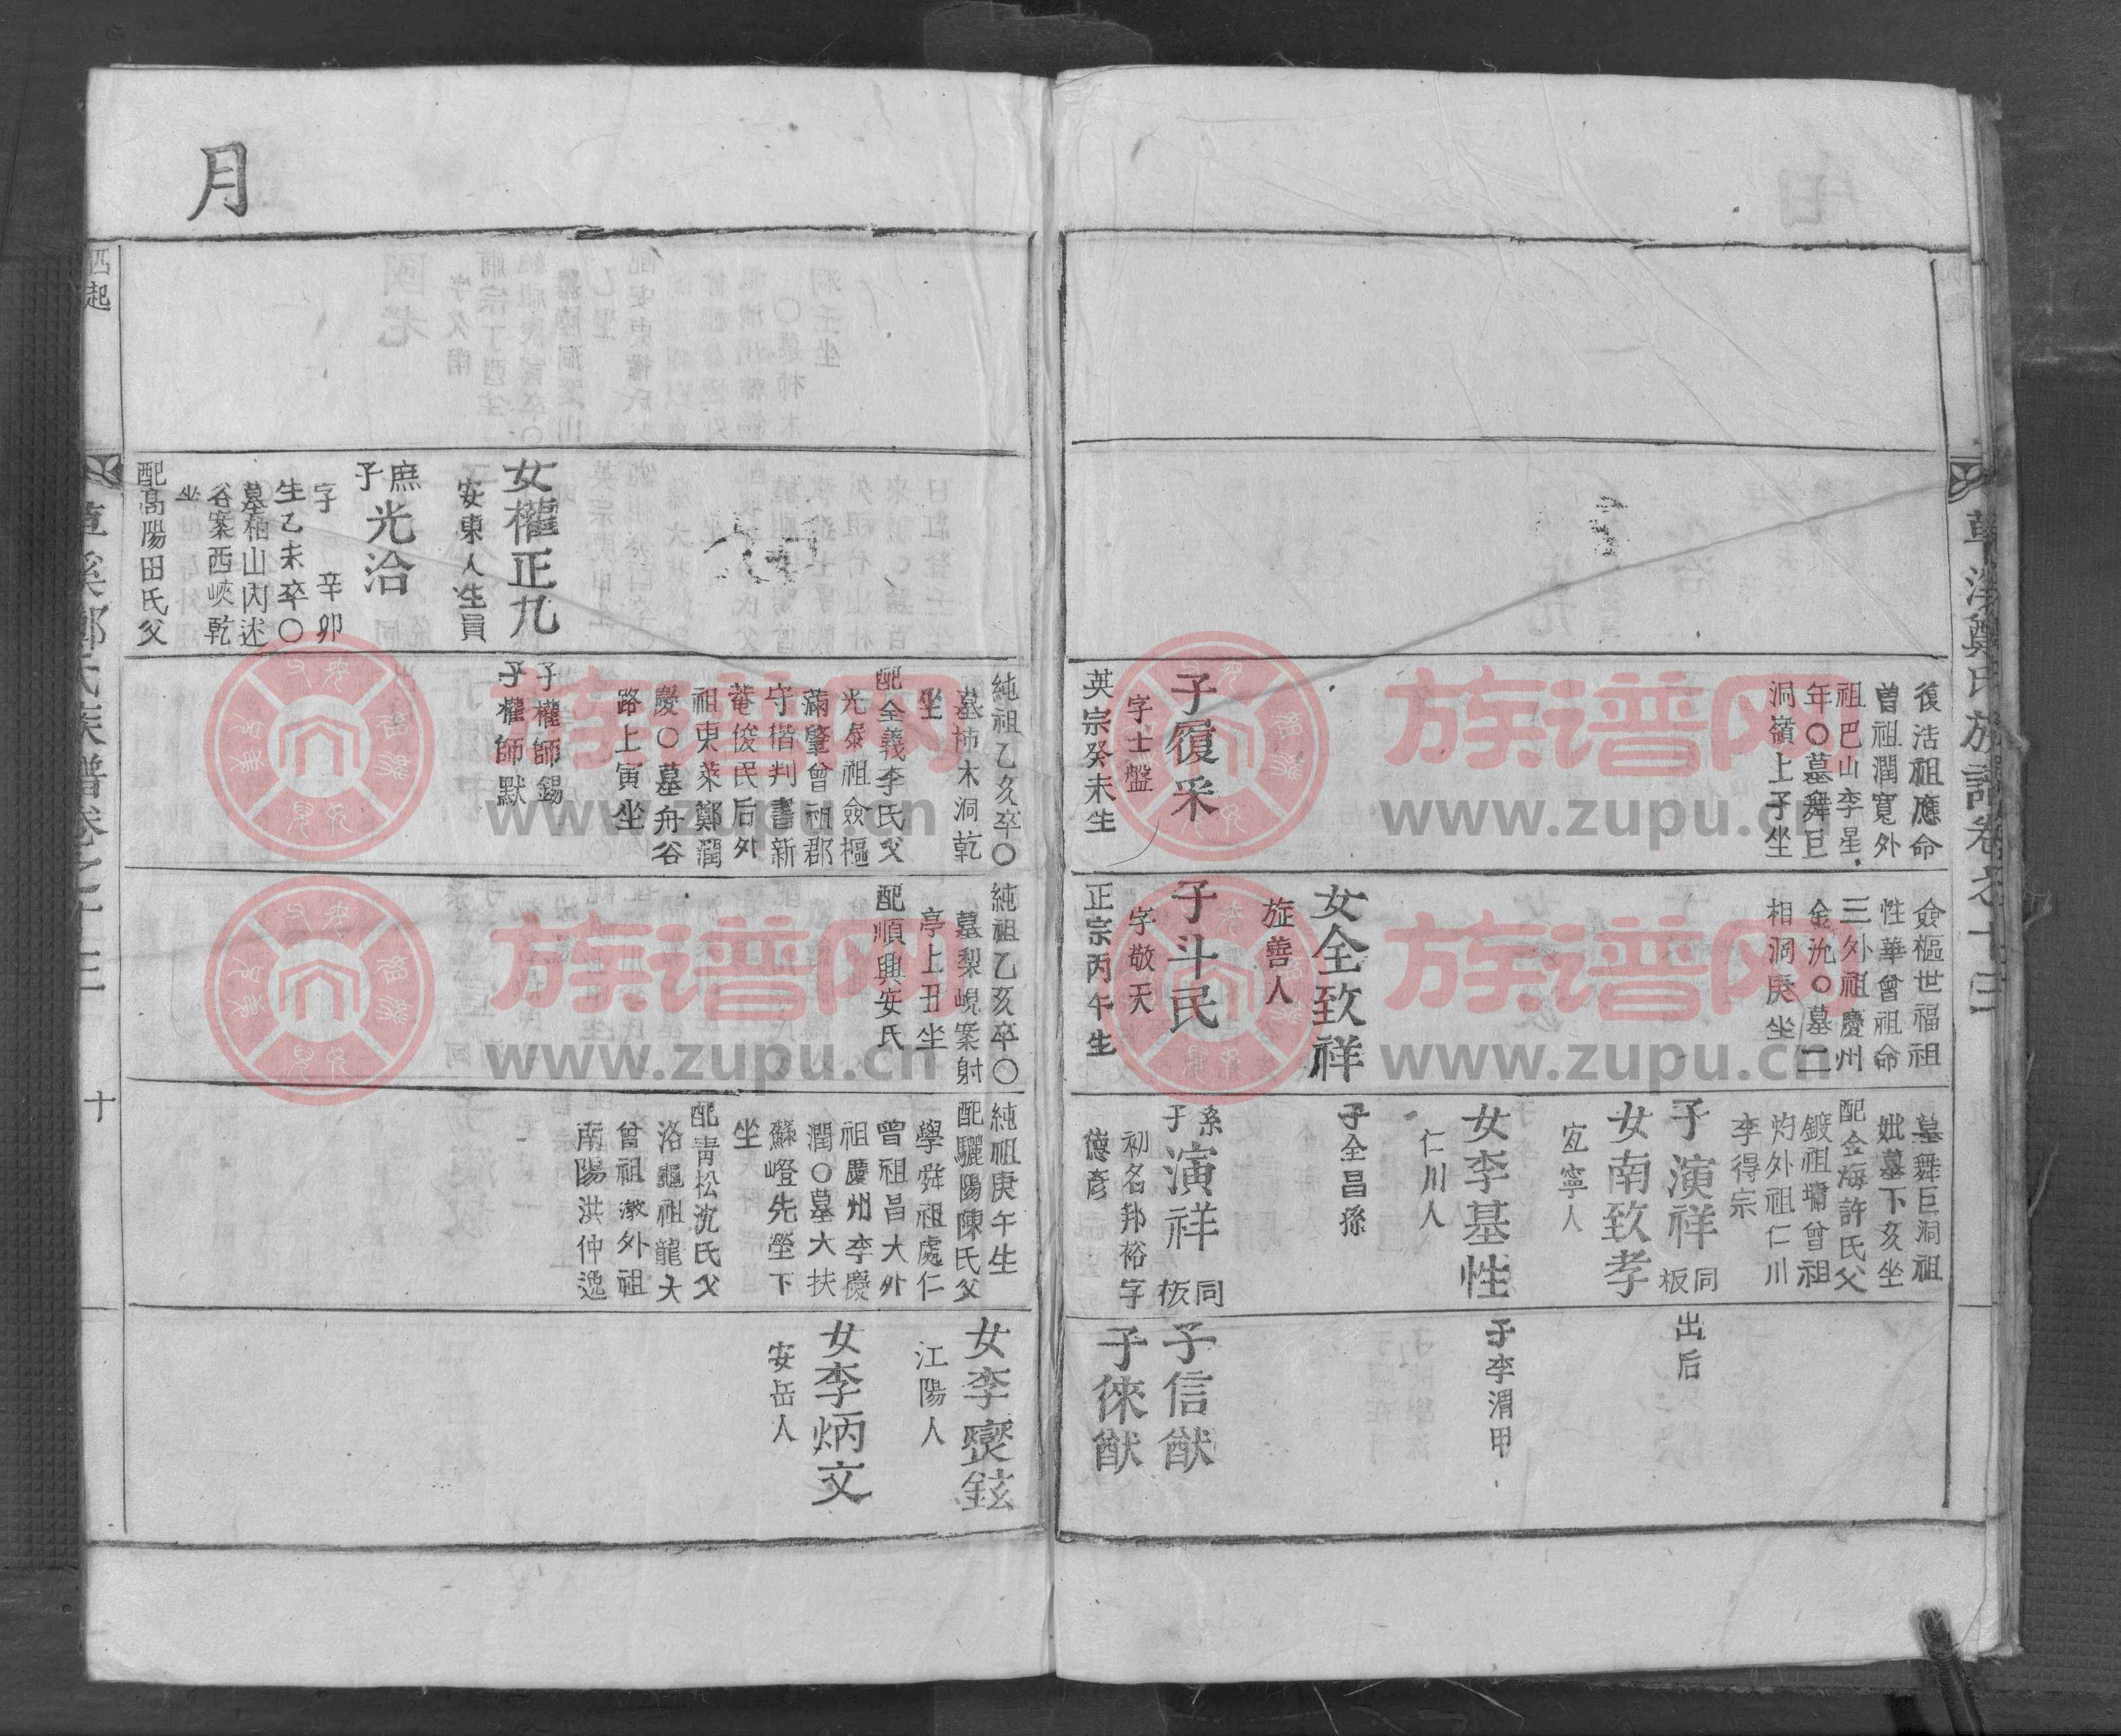 草溪鄭氏族譜卷之十三
復活祖應命
曾祖潤寬外
祖巴山李星
年〇墓舞巨
洞嶺上子坐
子復采
字士盤
英宗癸未生
僉樞世福祖
性華曾祖命
三外祖慶州
金沇〇墓二
相洞庚坐
女全致祥
旌善人
子斗民
字敬天
正宗丙午生
墓舞巨洞祖
妣墓下亥坐
配金海許氏父
鍍祖墉曾祖
灼外祖仁川
李得宗
子演祥
同板
女南致孝
宜寧人
女李基性
仁川人
子全昌孫
系子
演祥
同板
初名邦裕字
德彥
出后
子李渭甲
子信猷
子徠猷
月
女權正九
安東人生員
庶子
光洽
字 辛卯
生乙未卒〇
墓栢山內述
谷案西峽乾
坐
配高陽田氏父
純祖乙亥卒〇
墓柿木洞乾
坐
配全義李氏父
光泰祖僉樞
滿肇曾祖郡
守楷判書新
菴俊民后外
祖東萊鄭潤
慶〇墓舟谷
路上寅坐
子權師錫
子權師默
純祖乙亥卒〇
墓梨峴案射
亭上丑坐
配順興安氏
純祖庚午生
配驪陽陳氏父
學舜祖處仁
曾祖昌大外
祖慶州李慶
潤〇墓大扶
蘇嶝先塋下
坐
配靑松沈氏父
洛龜祖龍大
曾祖澂外祖
南陽洪仲逸
女李燮鉉
江陽人
女李炳文
安岳人
草溪鄭氏族譜卷之十三
十
族谱网
www.zupu.cn
族谱网
www.zupu.cn
族谱网
www.zupu.cn
族谱网
www.zupu.cn